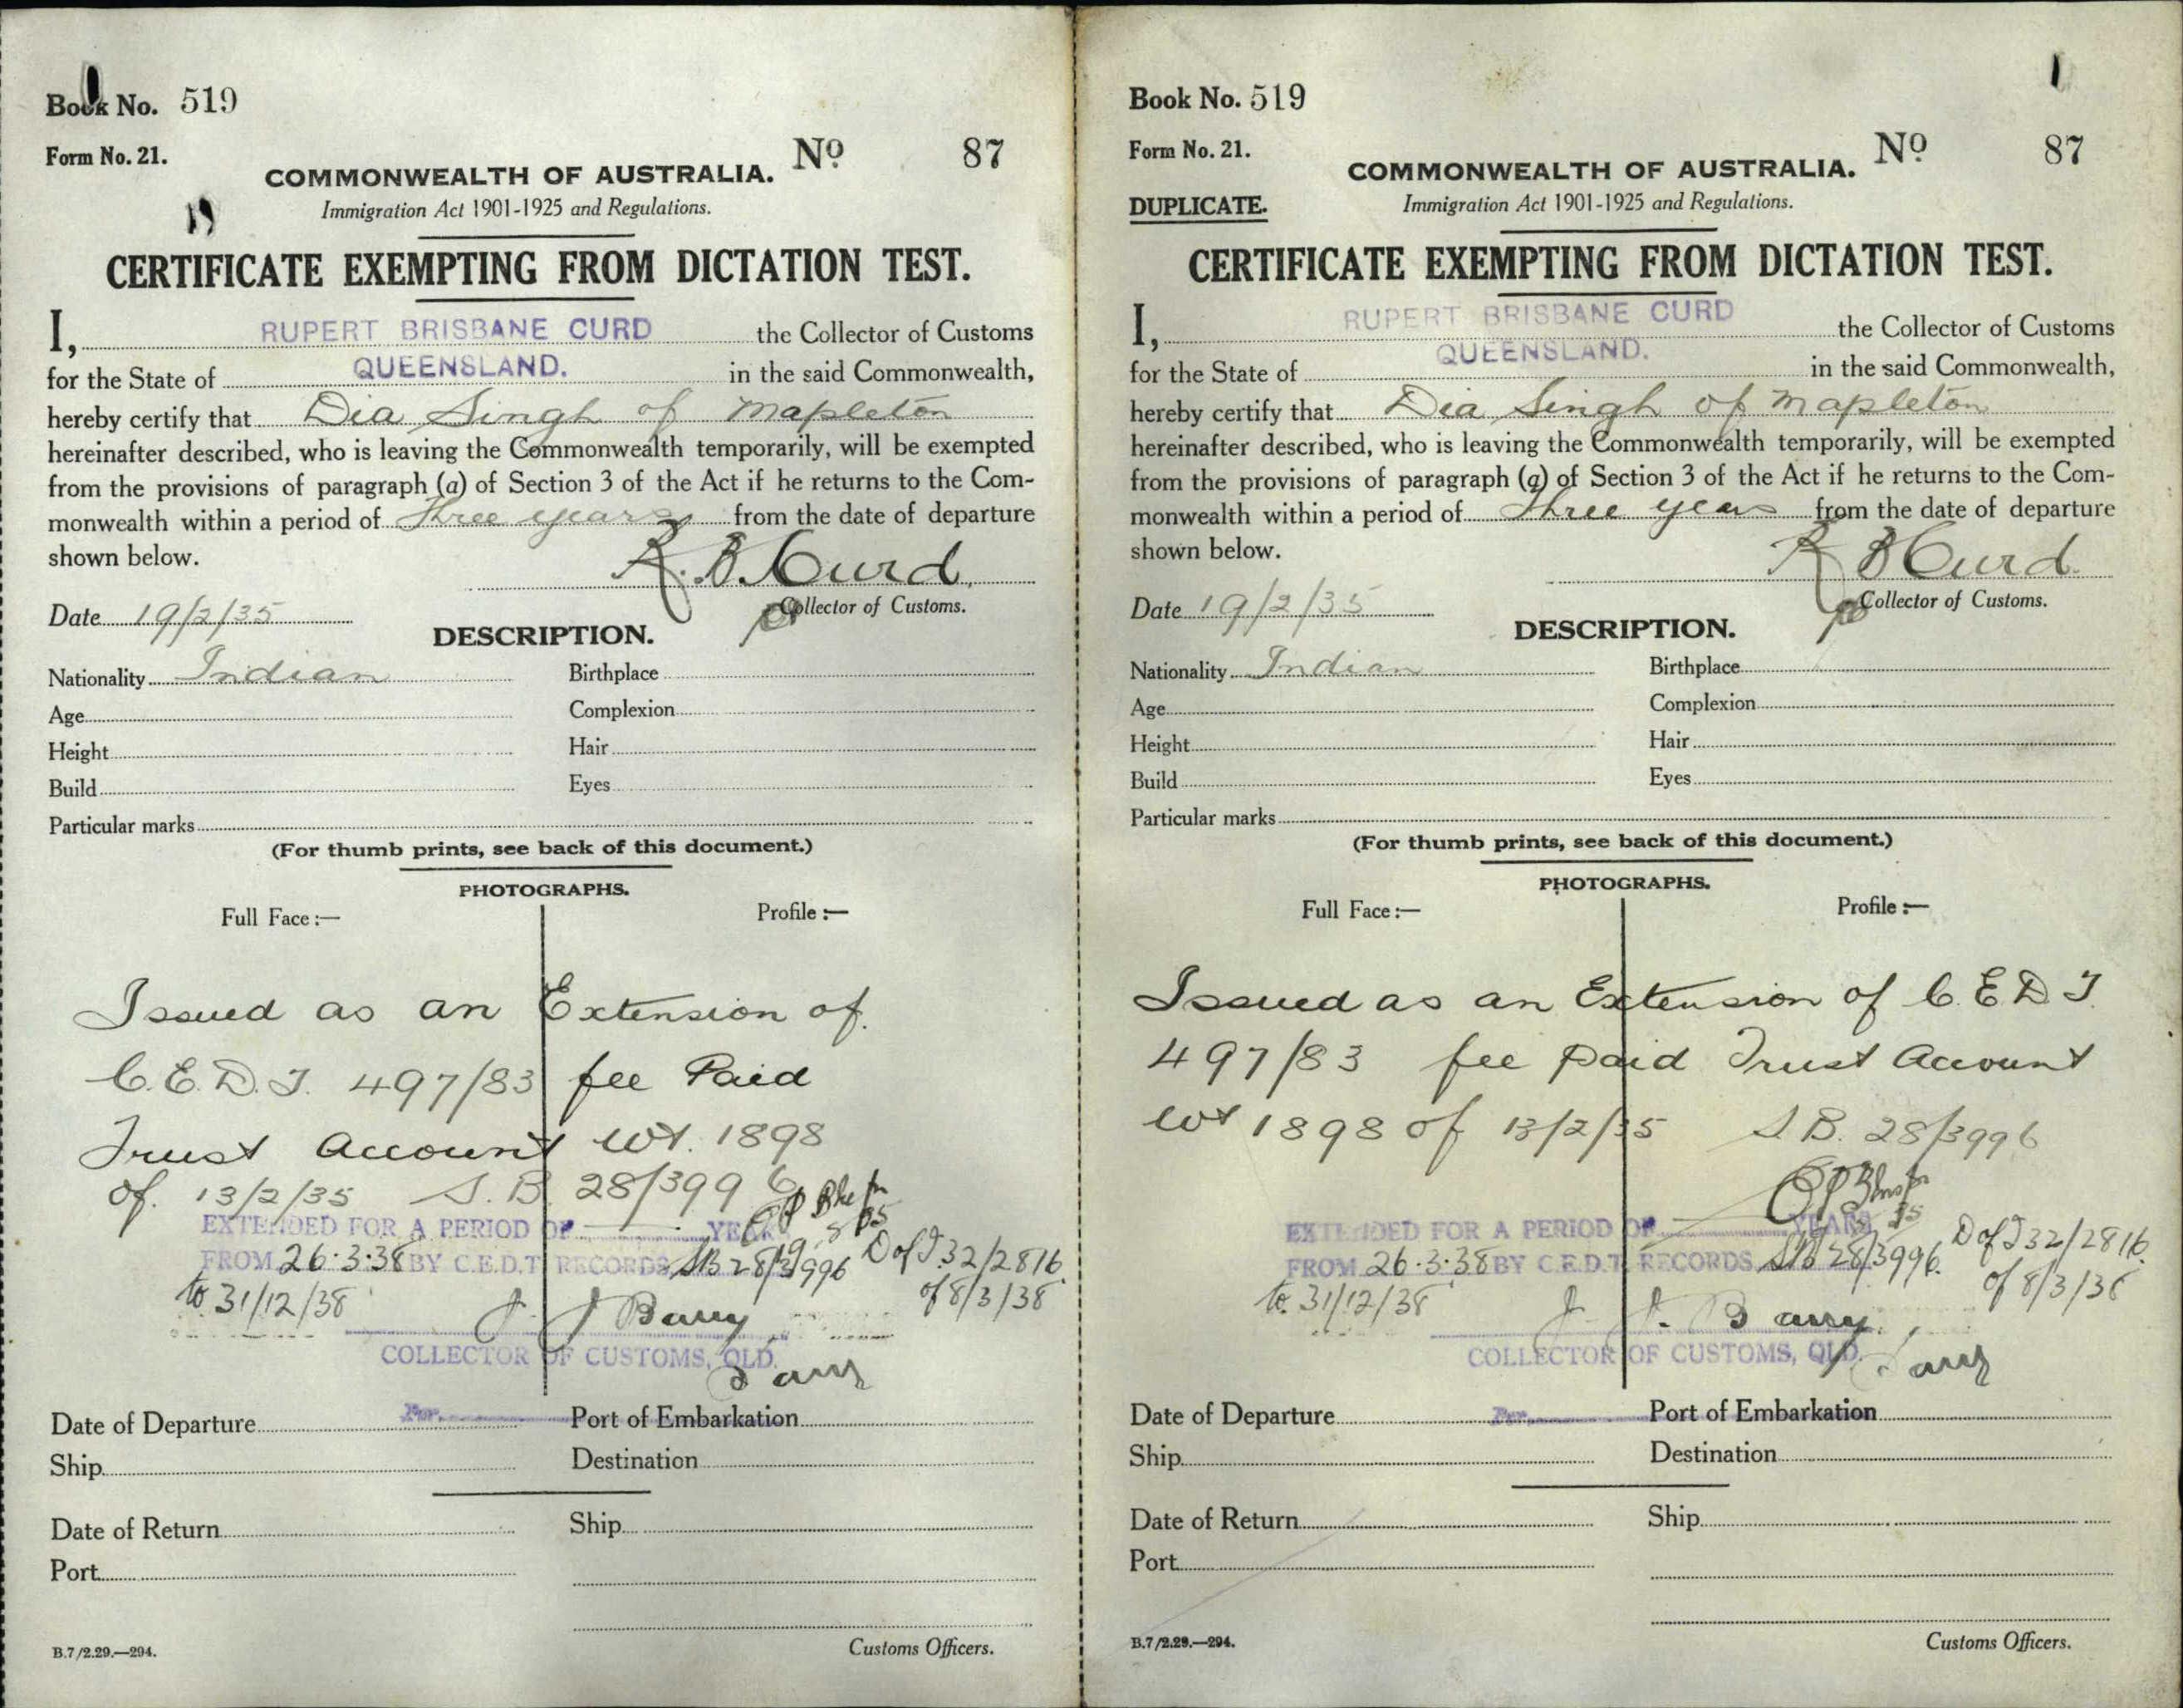 Book No. 519
Form No. 21.
No 87
COMMONWEALTH OF AUSTRALIA.
Immigration Act 1901-1925 and Regulations.
CERTIFICATE EXEMPTING FROM DICTATION TEST.
I, RUPERT BRISBANE CURD the Collector of Customs
for the State of QUEENSLAND. in the said Commonwealth,
hereby certify that Dia Singh of Mapleton
hereinafter described, who is leaving the Commonwealth temporarily, will be exempted
from the provisions of paragraph (a) of Section 3 of the Act if he returns to the Com-
monwealth within a period of three years from the date of departure
shown below.
R. B. Curd
Collector of Customs.
Date 19/2/35
DESCRIPTION.
Nationality Indian Birthplace
Age Complexion
Height Hair
Build Eyes
Particular marks
(For thumb prints, see back of this document.)
PHOTOGRAPHS.
Full Face:— Profile:—
Issued as an Extension of
C.E.D.T. 497/83 fee Paid
Trust Account Wt. 1898
of 13/2/35 S.B. 28/3996
EXTENDED FOR A PERIOD OF YEARS
FROM 26.3.38 BY C.E.D.T. RECORDS SB 28/3996 D of I 32/2816
to 31/12/38 of 8/3/38
J. J. Barry
COLLECTOR OF CUSTOMS, QLD.
Per
Date of Departure Port of Embarkation
Ship Destination
Date of Return Ship
Port
B.7/2.29.—294.
Customs Officers.
Book No. 519
Form No. 21.
No 87
DUPLICATE.
COMMONWEALTH OF AUSTRALIA.
Immigration Act 1901-1925 and Regulations.
CERTIFICATE EXEMPTING FROM DICTATION TEST.
I, RUPERT BRISBANE CURD the Collector of Customs
for the State of QUEENSLAND. in the said Commonwealth,
hereby certify that Dia Singh of Mapleton
hereinafter described, who is leaving the Commonwealth temporarily, will be exempted
from the provisions of paragraph (a) of Section 3 of the Act if he returns to the Com-
monwealth within a period of three years from the date of departure
shown below.
R B Curd
Collector of Customs.
Date 19/2/35
DESCRIPTION.
Nationality Indian Birthplace
Age Complexion
Height Hair
Build Eyes
Particular marks
(For thumb prints, see back of this document.)
PHOTOGRAPHS.
Full Face:— Profile:—
Issued as an Extension of C.E.D.T.
497/83 fee paid Trust Account
Wt 1898 of 13/2/35 S.B. 28/3996
EXTENDED FOR A PERIOD OF YEARS
FROM 26.3.38 BY C.E.D.T. RECORDS SB 28/3996. D of I 32/2816
to 31/12/38 of 8/3/38
J. J. Barry
COLLECTOR OF CUSTOMS, QLD.
Per
Date of Departure Port of Embarkation
Ship Destination
Date of Return Ship
Port
B.7/2.29.—294.
Customs Officers.